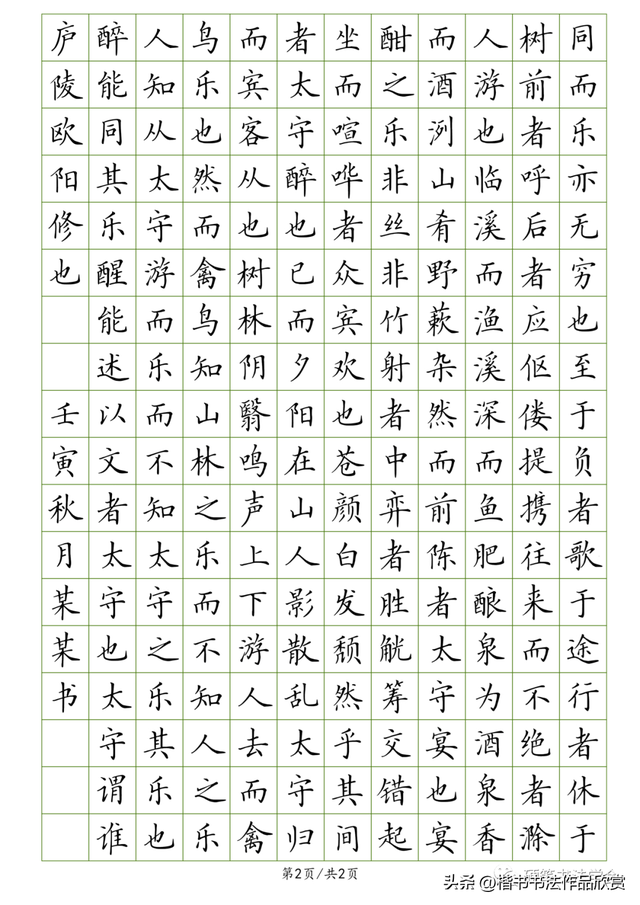 同而乐亦无穷也至于负者歌于途行者休于
树前者呼后者应伛偻提携往来而不绝者滁
人游也临溪而渔溪深而鱼肥酿泉为酒泉香
而酒洌山肴野蔌杂然而前陈者太守宴也宴
酣之乐非丝非竹射者中弈者胜觥筹交错起
坐而喧哗者众宾欢也苍颜白发颓然乎其间
者太守醉也已而夕阳在山人影散乱太守归
而宾客从也树林阴翳鸣声上下游人去而禽
鸟乐也然而禽鸟知山林之乐而不知人之乐
人知从太守游而乐而不知太守之乐其乐也
醉能同其乐醒能述以文者太守也太守谓谁
庐陵欧阳修也 壬寅秋月某某书
第2页/共2页
头条 @楷书书法作品欣赏